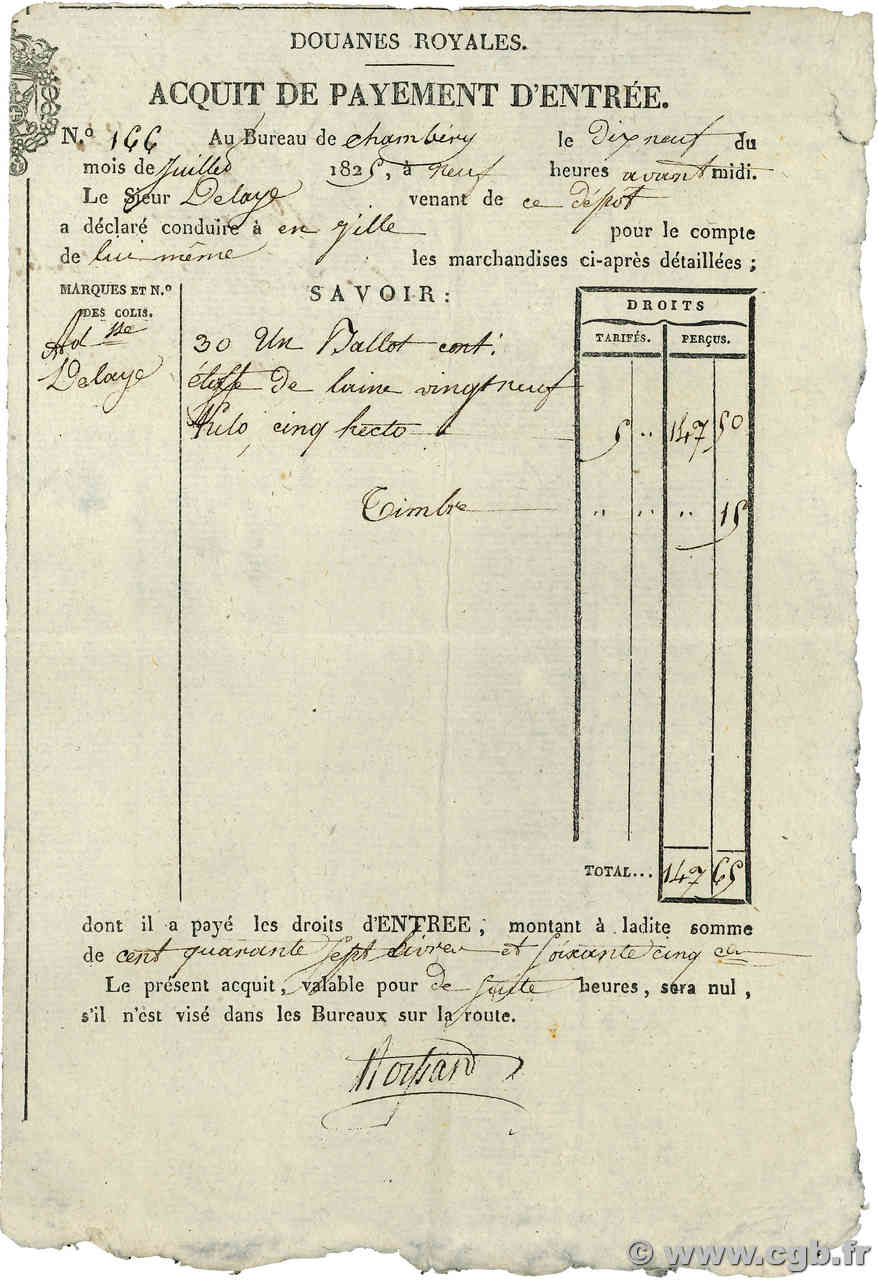 DOUANES ROYALES.
ACQUIT DE PAYEMENT D'ENTRÉE.
N.º 166 Au Bureau de Chambéry le Dix neuf du
mois de Juillet 1825, à neuf heures avant midi.
Le Sieur Delaye venant de ce dépot
a déclaré conduire à en Ville pour le compte
de lui même les marchandises ci-après détaillées ;
MARQUES ET N.º
DES COLIS.
SAVOIR :
DROITS
TARIFÉS. PERÇUS.
Delaye
30 Un Ballot cont.
étoffe de laine vingt neuf
Kilo, cinq hecto 5 " 147 50
Timbre " " " 15
TOTAL... 147 65
dont il a payé les droits d'ENTREE ; montant à ladite somme
de cent quarante sept livres et soixante cinq cen
Le présent acquit, valable pour de suite heures, sera nul ,
s'il n'est visé dans les Bureaux sur la route.
© www.cgb.fr